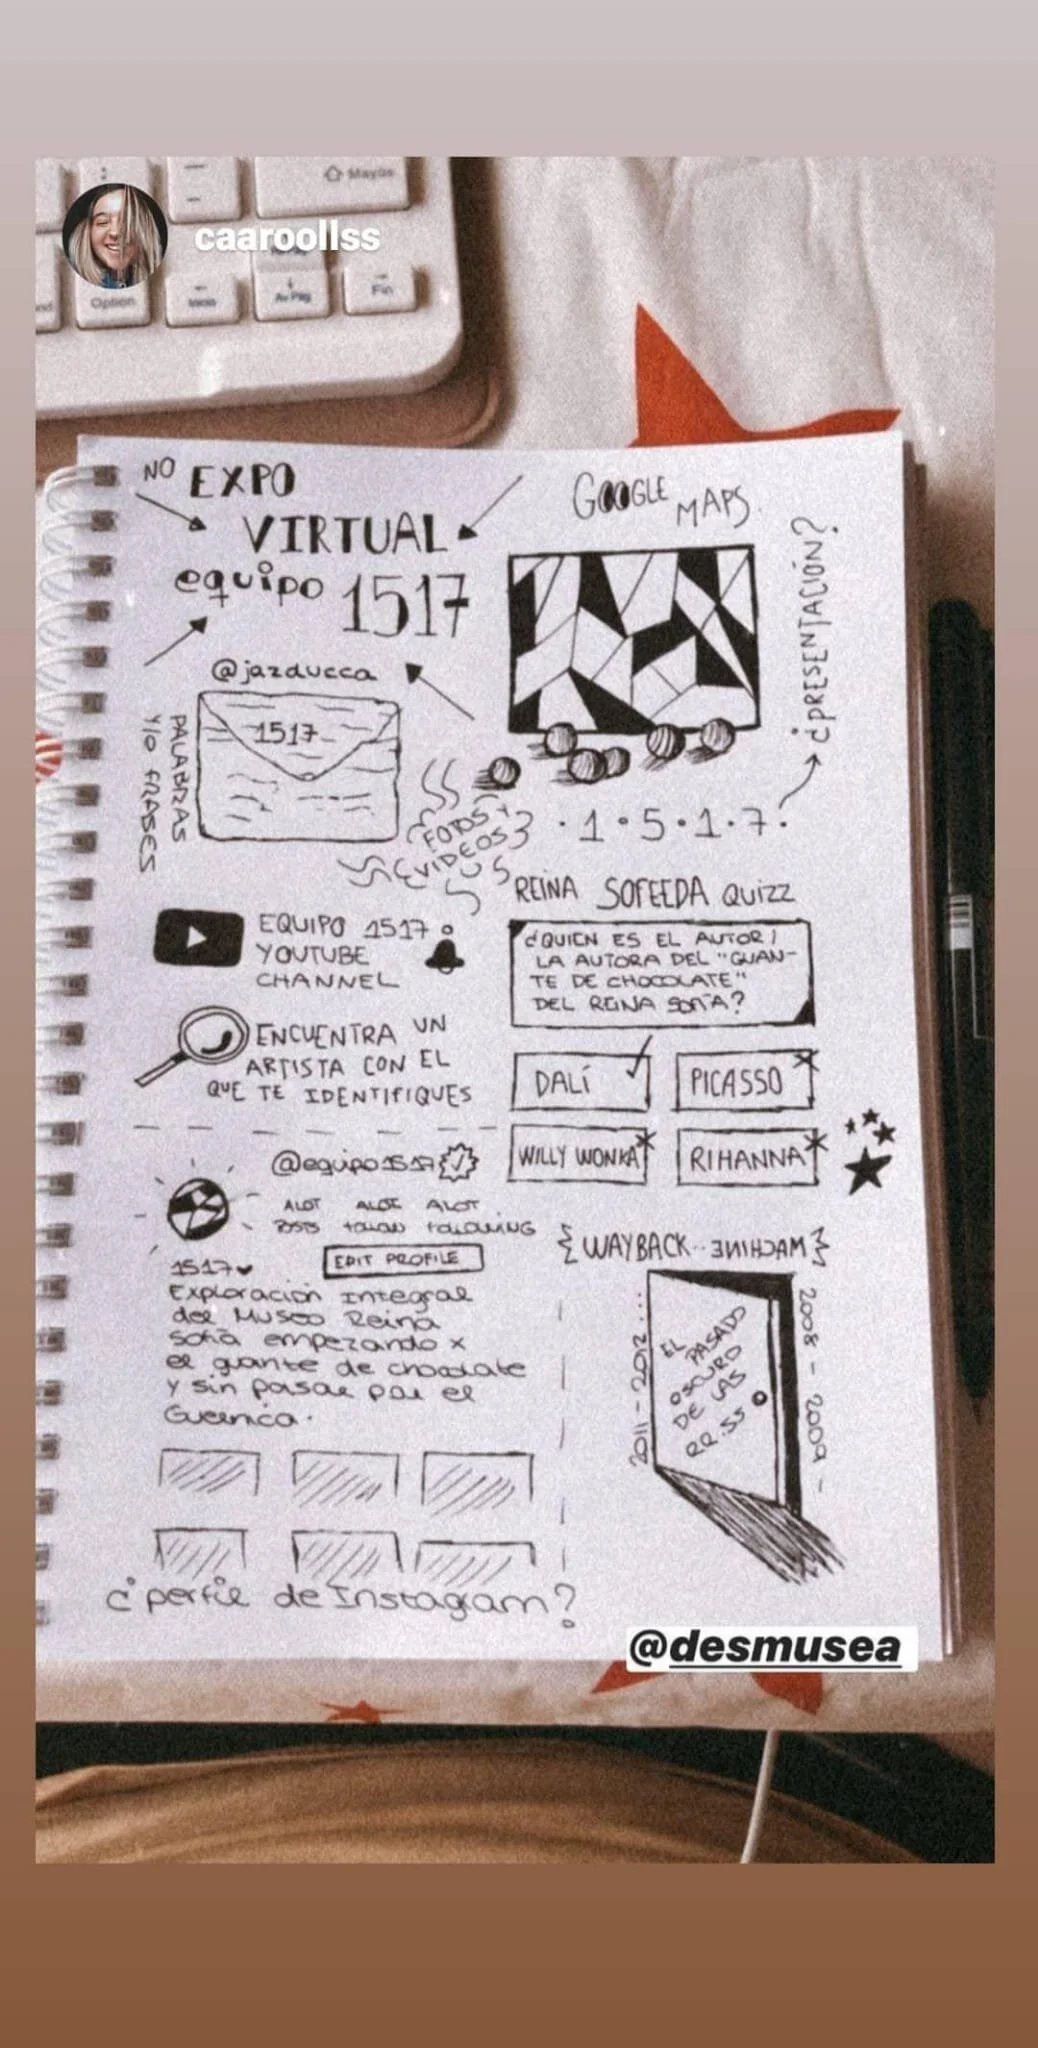 Mayús
caaroollss
Option
Inicio
Av Pág
Fin
NO EXPO
VIRTUAL
equipo 1517
@jazducca
1517
PALABRAS
Y/O FRASES
FOTOS Y
VIDEOS
GOOGLE
MAPS.
¿PRESENTACIÓN?
·1·5·1·7·
EQUIPO 1517
YOUTUBE
CHANNEL
ENCUENTRA UN
ARTISTA CON EL
QUE TE IDENTIFIQUES
REINA SOFEEDA QUIZZ
¿QUIEN ES EL AUTOR/
LA AUTORA DEL "GUAN-
TE DE CHOCOLATE"
DEL REINA SOFÍA?
DALÍ
PICASSO
WILLY WONKA
RIHANNA
@equipo1517
ALOT ALOT ALOT
POSTS FOLLOW FOLLOWING
1517
EDIT PROFILE
Exploración Integral
del Museo Reina
Sofía empezando x
el guante de chocolate
y sin pasar por el
Guernica.
¿perfil de Instagram?
{WAYBACK··MACHINE}
2011-2012...
EL PASADO
OSCURO
DE LAS
RR.SS
2008-2009-
@desmusea